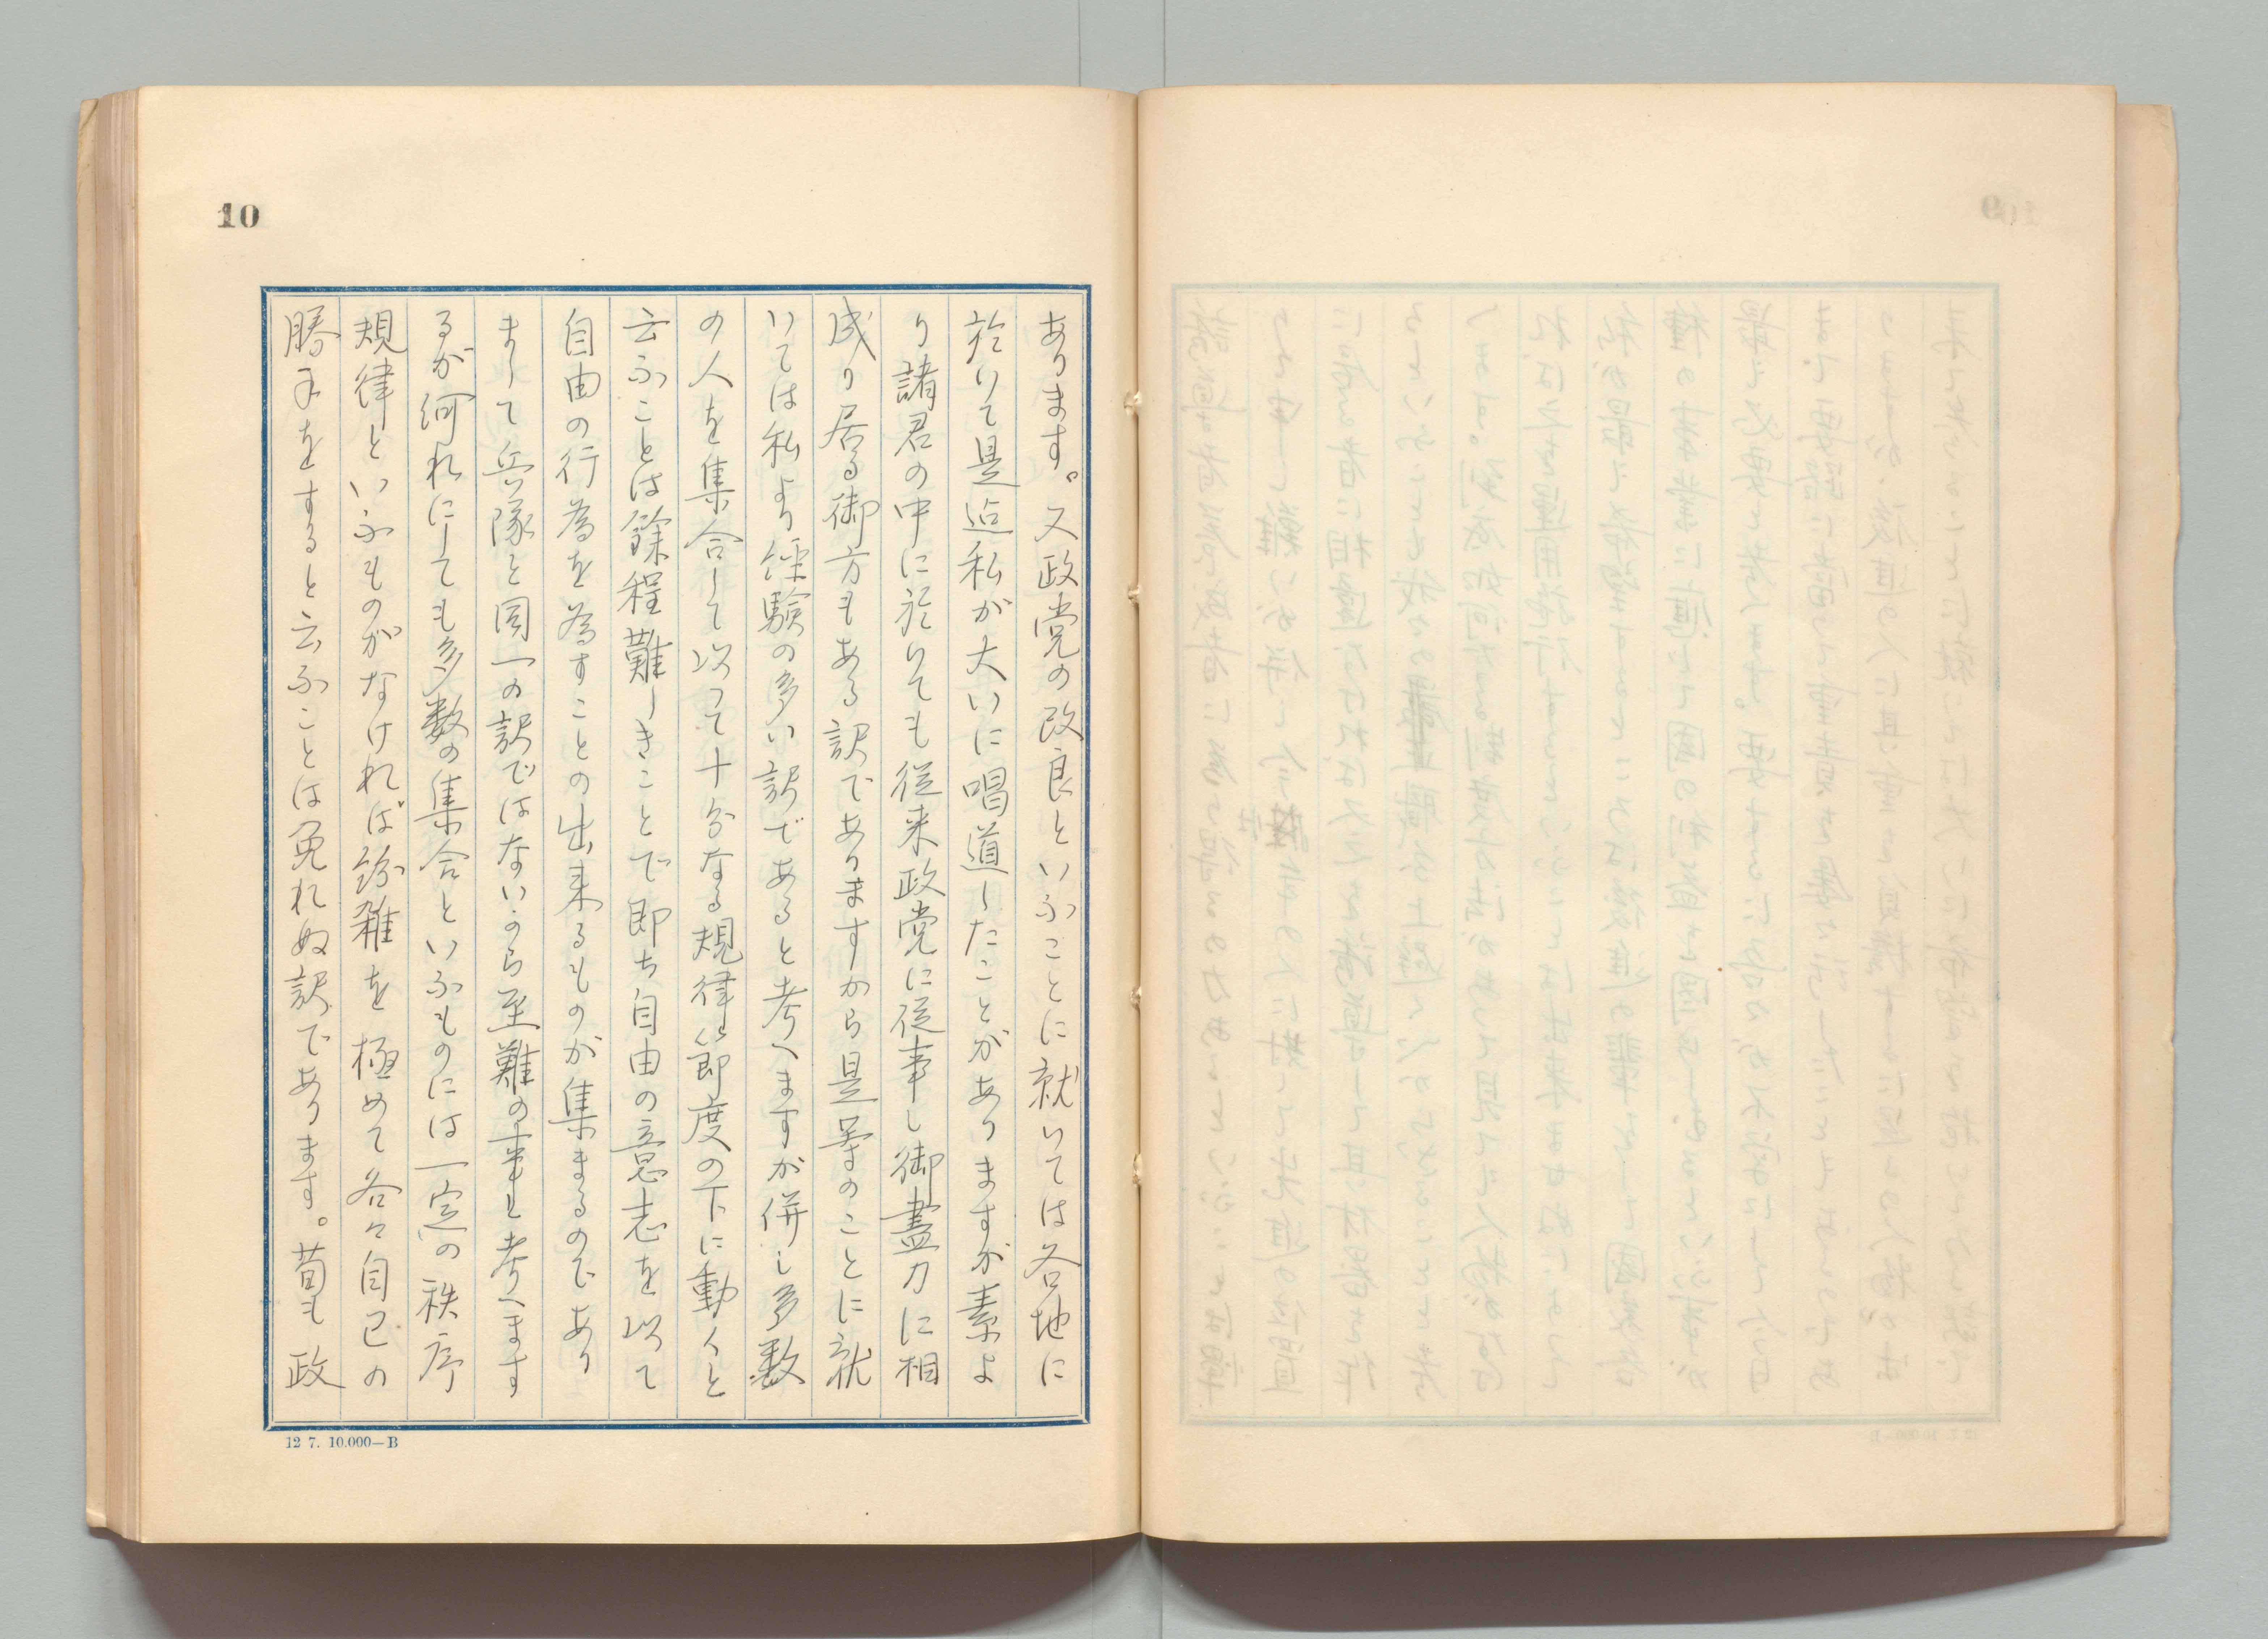 10
あります。又政党の改良といふことに就いては各地に
於いて是迄私が大いに唱道したことがありますが素よ
り諸君の中に於いても従来政党に従事し御盡力に相
成り居る御方もある訳でありますから是等のことに就
いては私より経験の多い訳であると考へますが併し多数
の人を集合して以って十分なる規律節度の下に動くと
云ふことは餘程難しきことで即ち自由の意志を以て
自由の行為を為すことの出来るものが集まるのであり
まして兵隊と同一の訳ではないから至難の事と考へます
るが何れにしても多数の集合といふものには一定の秩序
規律といふものがなければ紛雑を極めて各々自己の
勝手をすると云ふことは免れぬ訳であります。苟も政
12 7. 10.000—B